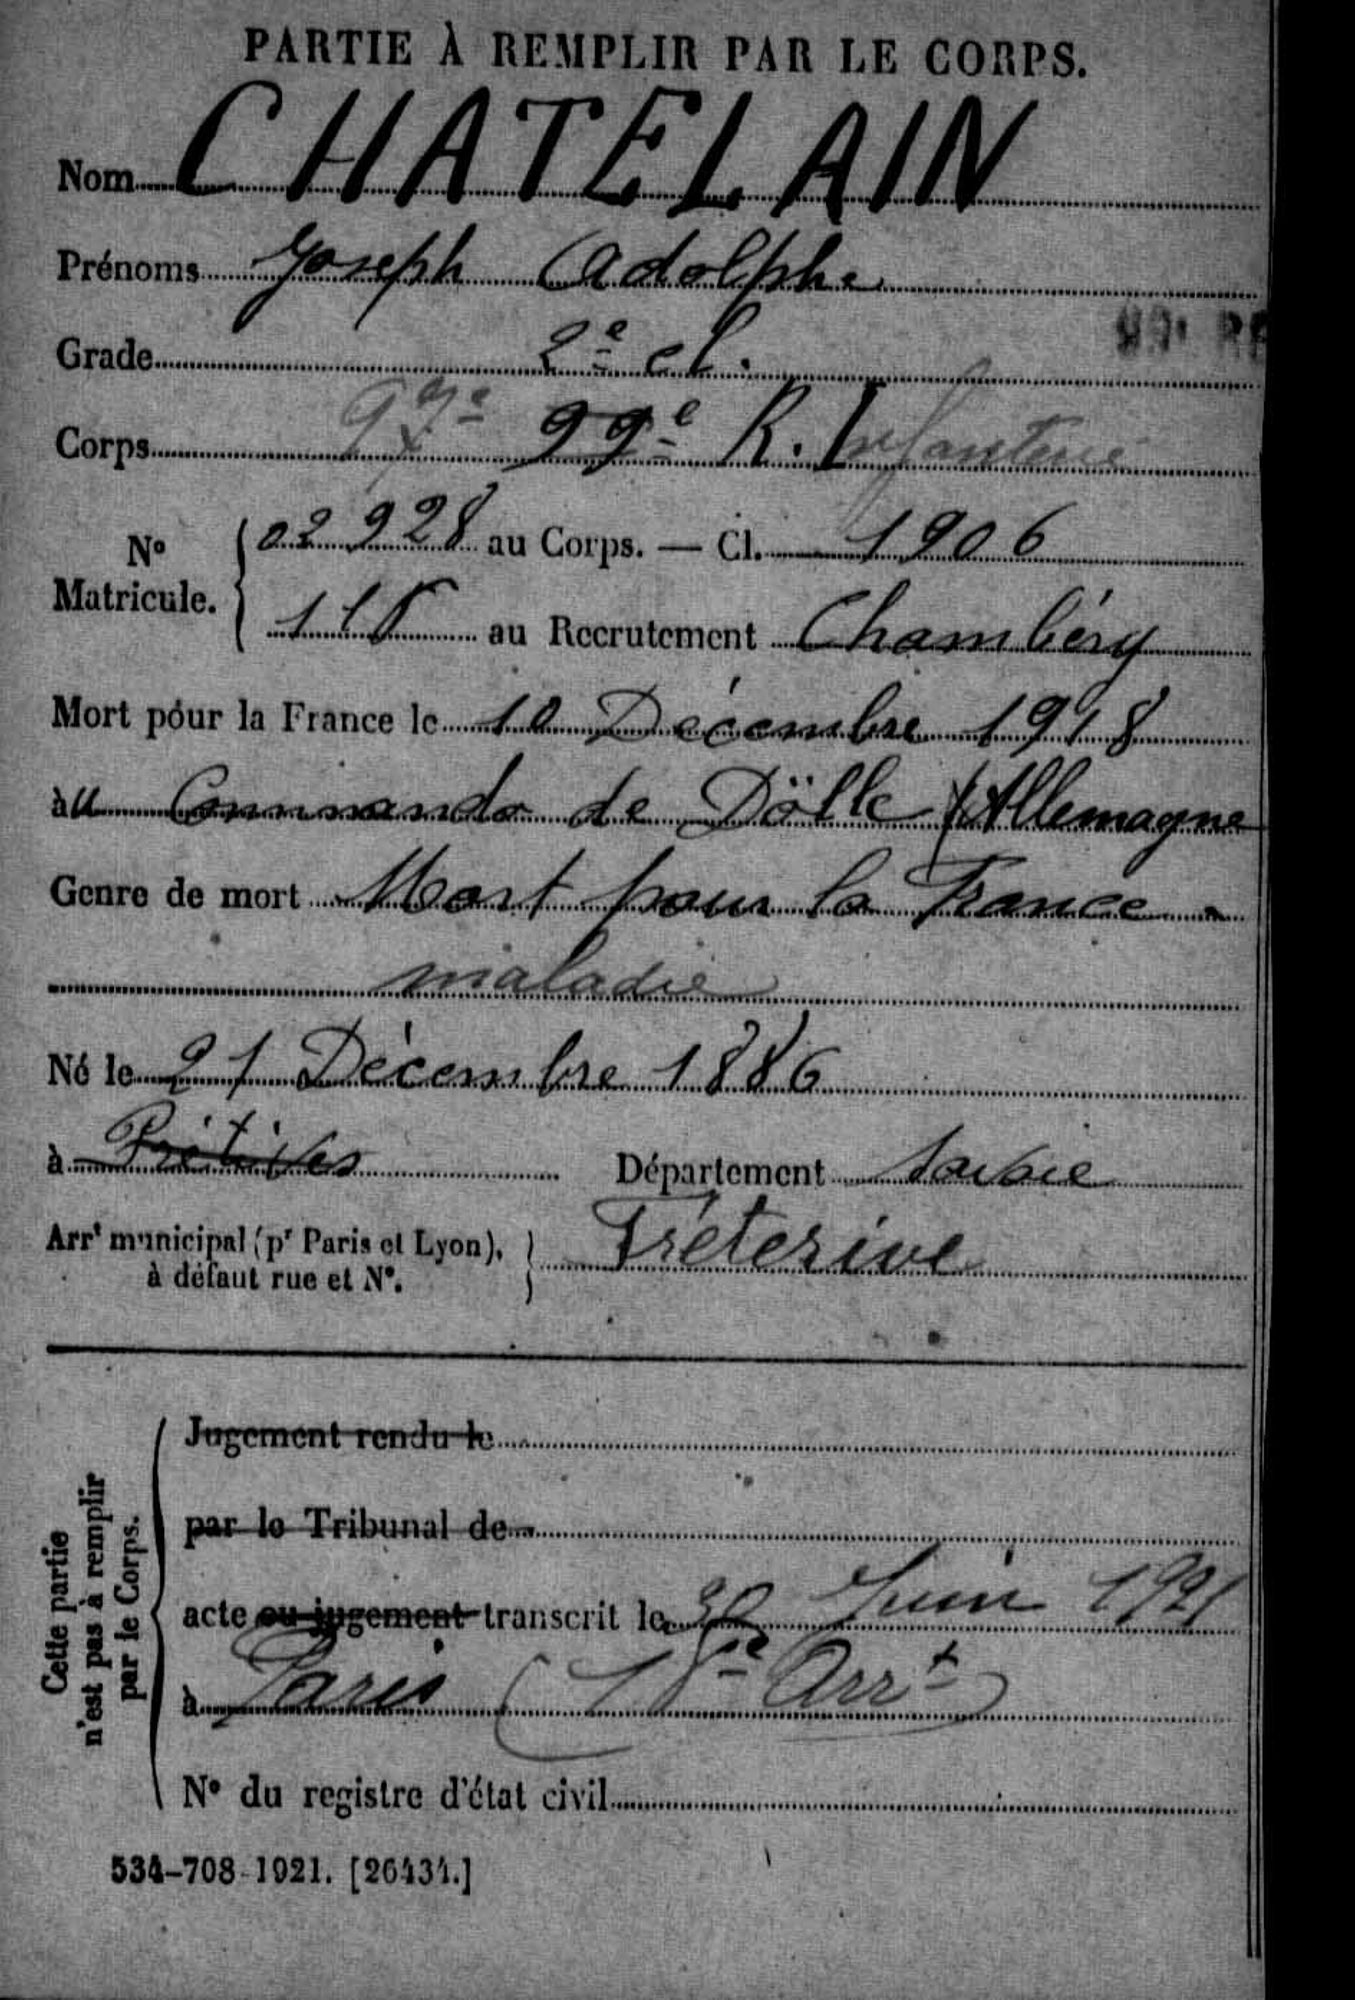 PARTIE À REMPLIR PAR LE CORPS.
Nom CHATELAIN
Prénoms Joseph Adolphe
Grade 2e cl.
Corps 97e 99e R. Infanterie
No Matricule. { 02928 au Corps. — Cl. 1906
au Recrutement Chambéry
Mort pour la France le 10 Décembre 1918
àu Commando de Dölle / Allemagne
Genre de mort Mort pour la France -
maladie
Né le 21 Décembre 1886
à Département Savoie
Arrt municipal (pr Paris et Lyon), à défaut rue et No. } Fréterive
Cette partie n'est pas à remplir par le Corps.
Jugement rendu le
par le Tribunal de
acte ou jugement transcrit le 30 Juin 1921
à Paris (18e Arrt)
No du registre d'état civil
534-708-1921. [26434.]